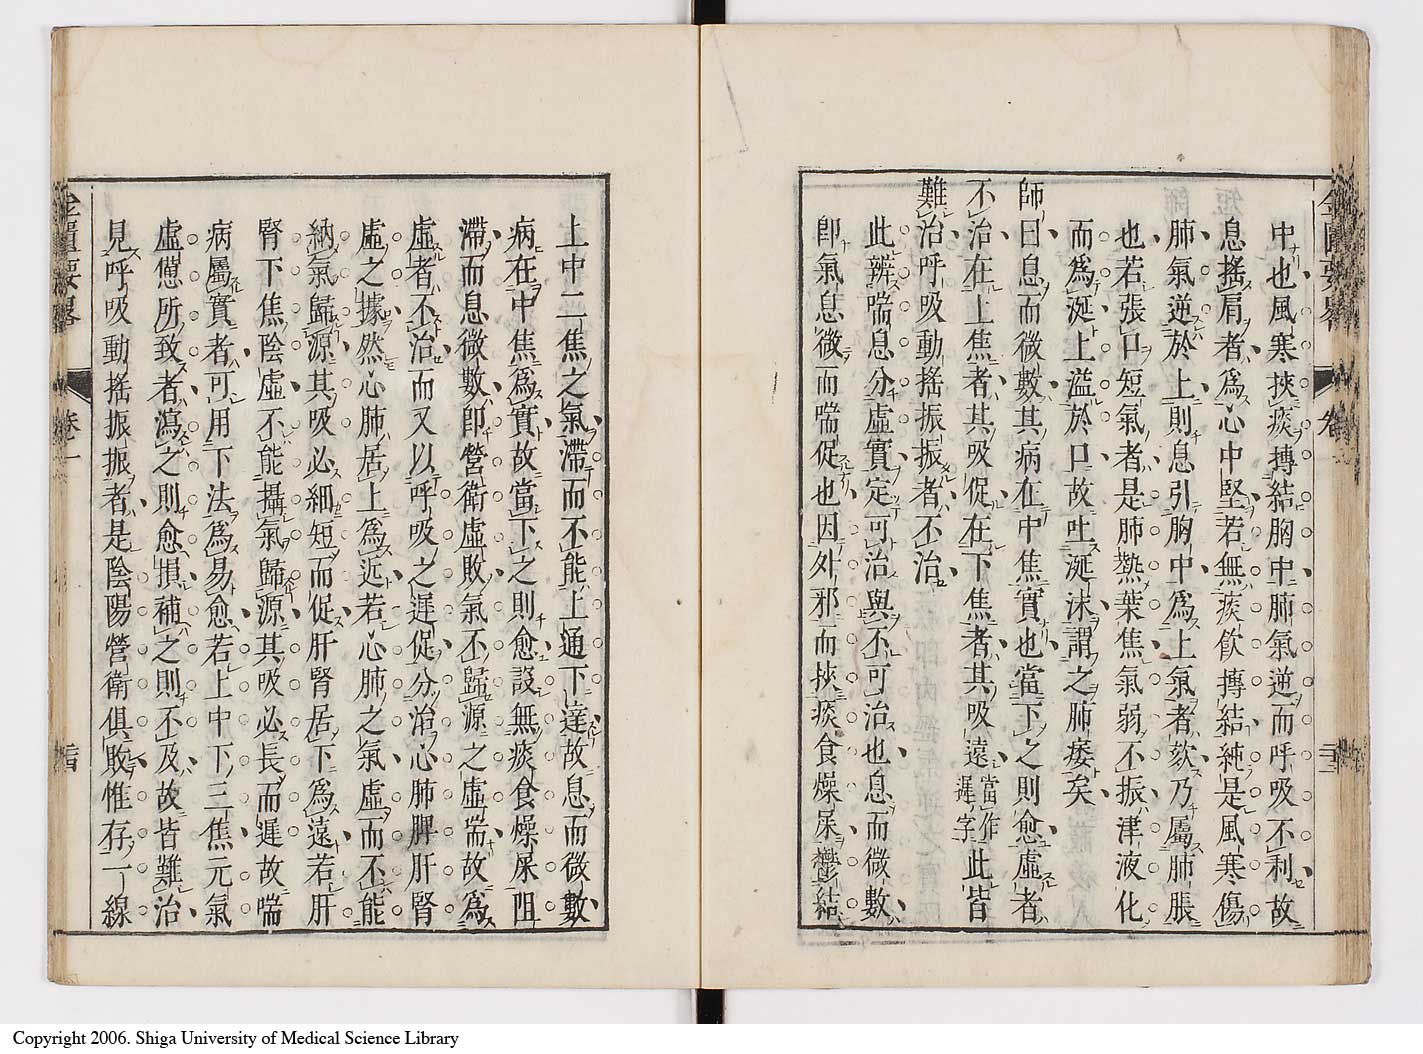 中也風寒挾痰摶結胸中肺氣逆而呼吸不利故
息搖肩者爲心中堅若無痰飮摶結純是風寒傷
肺氣逆於上則息引胸中爲上氣者欬乃屬肺脹
也若張口短氣者是肺熱葉焦氣弱不振津液化
而爲涎上溢於口故吐涎沫謂之肺痿矣
師曰息而微數其病在中焦實也當下之則愈虛者
不治在上焦者其吸促在下焦者其吸遠當作遲字此皆
難治呼吸動搖振振者不治
此辨喘息分虛實定可治與不可治也息而微數
卽氣息微而喘促也因外邪而挾痰食燥屎鬱結
上中二焦之氣滯而不能上通下達故息而微數
病在中焦爲實故當下之則愈設無痰食燥屎阻
滯而息微數卽營衛虛敗氣不歸源之虛喘故爲
虛者不治而又以呼吸之遲促分治心肺脾肝腎
虛之據然心肺居上爲近若心肺之氣虛而不能
納氣歸源其吸必細短而促肝腎居下爲遠若肝
腎下焦陰虛不能攝氣歸源其吸必長而遲故喘
病屬實者可用下法爲易愈若上中下三焦元氣
虛憊所致者瀉之則愈損補之則不及故皆難治
見呼吸動搖振振者是陰陽營衛俱敗惟存一線
金匱要畧
卷一
Copyright 2006. Shiga University of Medical Science Library